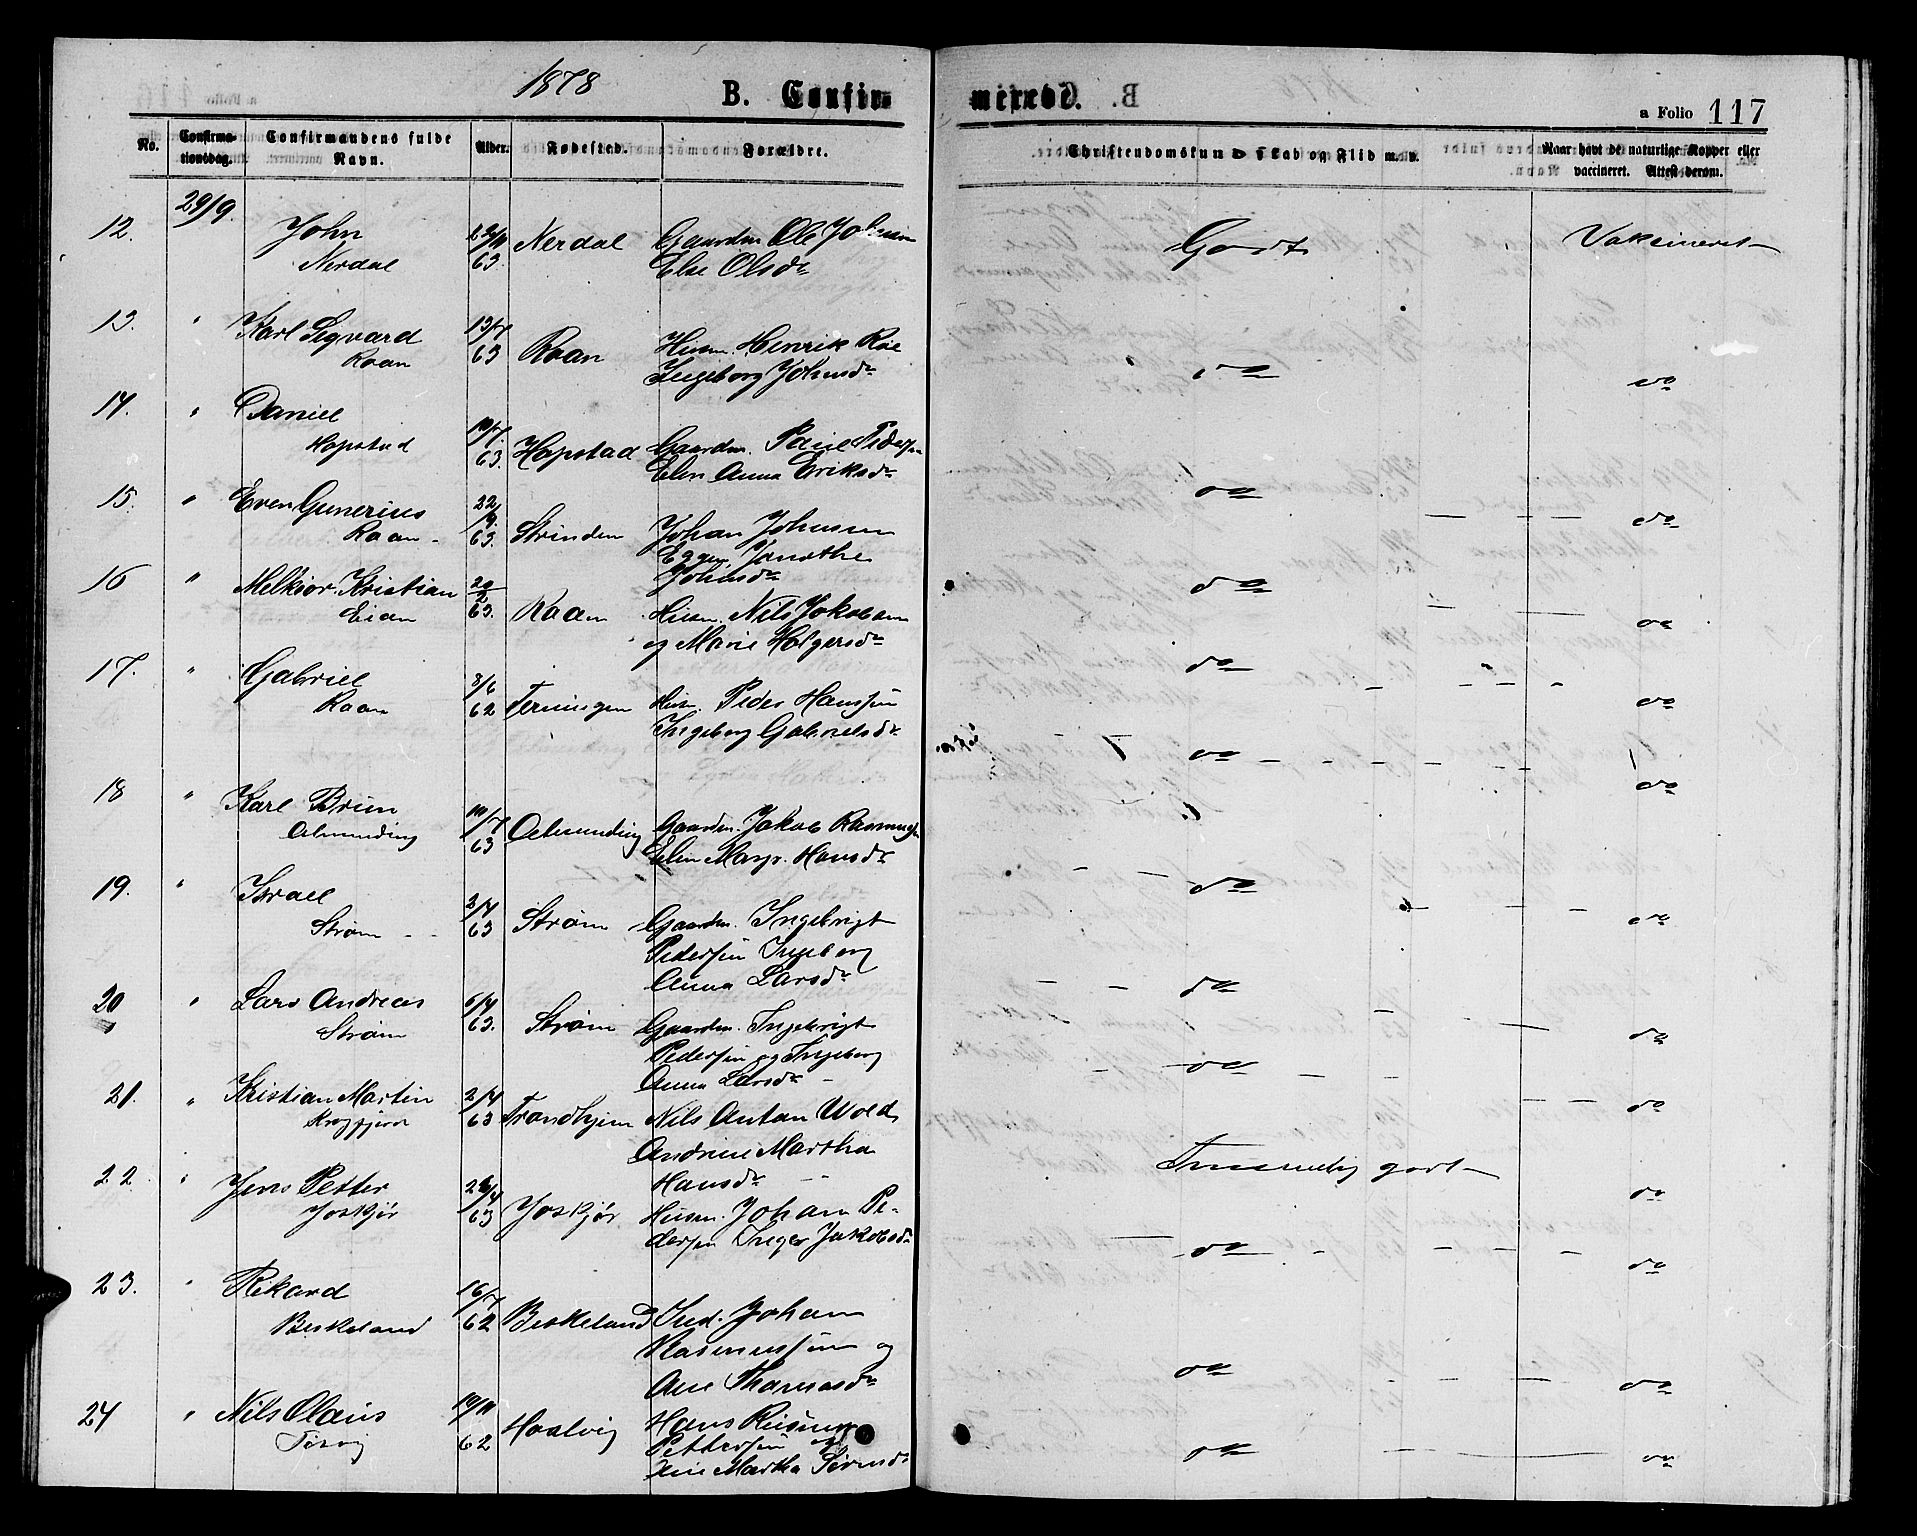 1878
B. Confirmerede.
a Folio 117
No. Confirmationsdag. Confirmandens fulde Navn. Alder. Fødested. Forældre. Christendomskundskab og Flid m. v. Naar havt de naturlige Kopper eller vaccineret. Attest derom.
29/9
12. John Nerdal 63. Nerdal Gaardm. Ole Johnsen Else Olsdr Godt Vaksineret
13. " Karl Sigvard Raan 63 Raan Husm. Henrik Roe Ingeborg Johnsdr do do
14. " Daniel Hopstad 63. Hopstad Gaardm. Paul Pedersen Elen Anna Eriksdr do do
15. " Even Gunerius Raan 22/9 63. Strinden Johan Johnsen Eggen, Janethe Johnsdr do do
16 " Melkior Kristian Eian 20/2 63. Raan Husm. Nils Jakobsen og Marie Holgersdr do do
17. " Gabriel Raan 3/6 62 Terningen Husm. Peder Hanssen Ingeborg Gabrielsdr do do
18 " Karl Brun Almending 63 Almending Gaardm. Jakob Rasmussen Elen Margr. Hansdr do do
19. " Israel Strøm 3/4 63 Strøm Gaardm. Ingebrigt Pedersen Ingeborg Anna Larsdr do do
20 " Lars Andreas Strøm 6/4 63. Strøm Gaardm. Ingebrigt Pedersen og Ingeborg Anna Larsdr do do
21. " Kristian Martin 2/4 63 Trondhjem Nils Antan Wold Andrine Martha Hansdr Temmelig godt do
22. " Jens Petter Joskjør 26/4 63 Joskjør Husm. Johan Pedersen Inger Jakobsdr do do
23. " Rikard Beskeland 16/7 62 Beskeland Ind. Johan Rasmussen og Ane Thomasdr do do
24 " Nils Olaus 19/11 62 Hans Pettersen og Martha do do